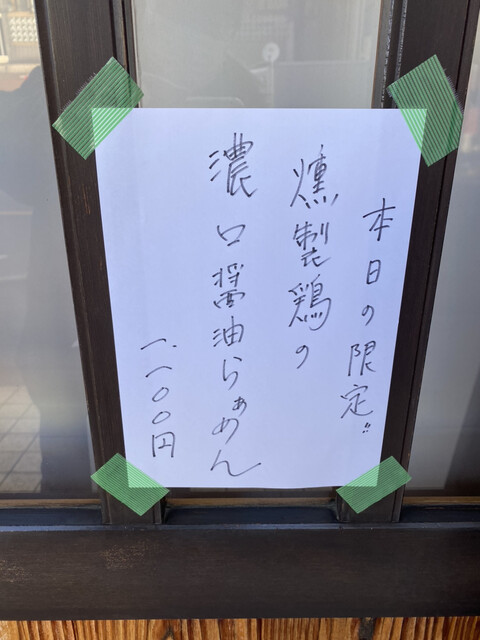 本日の限定‼
燻製鶏の
濃口醤油らぁめん
一.一〇〇円